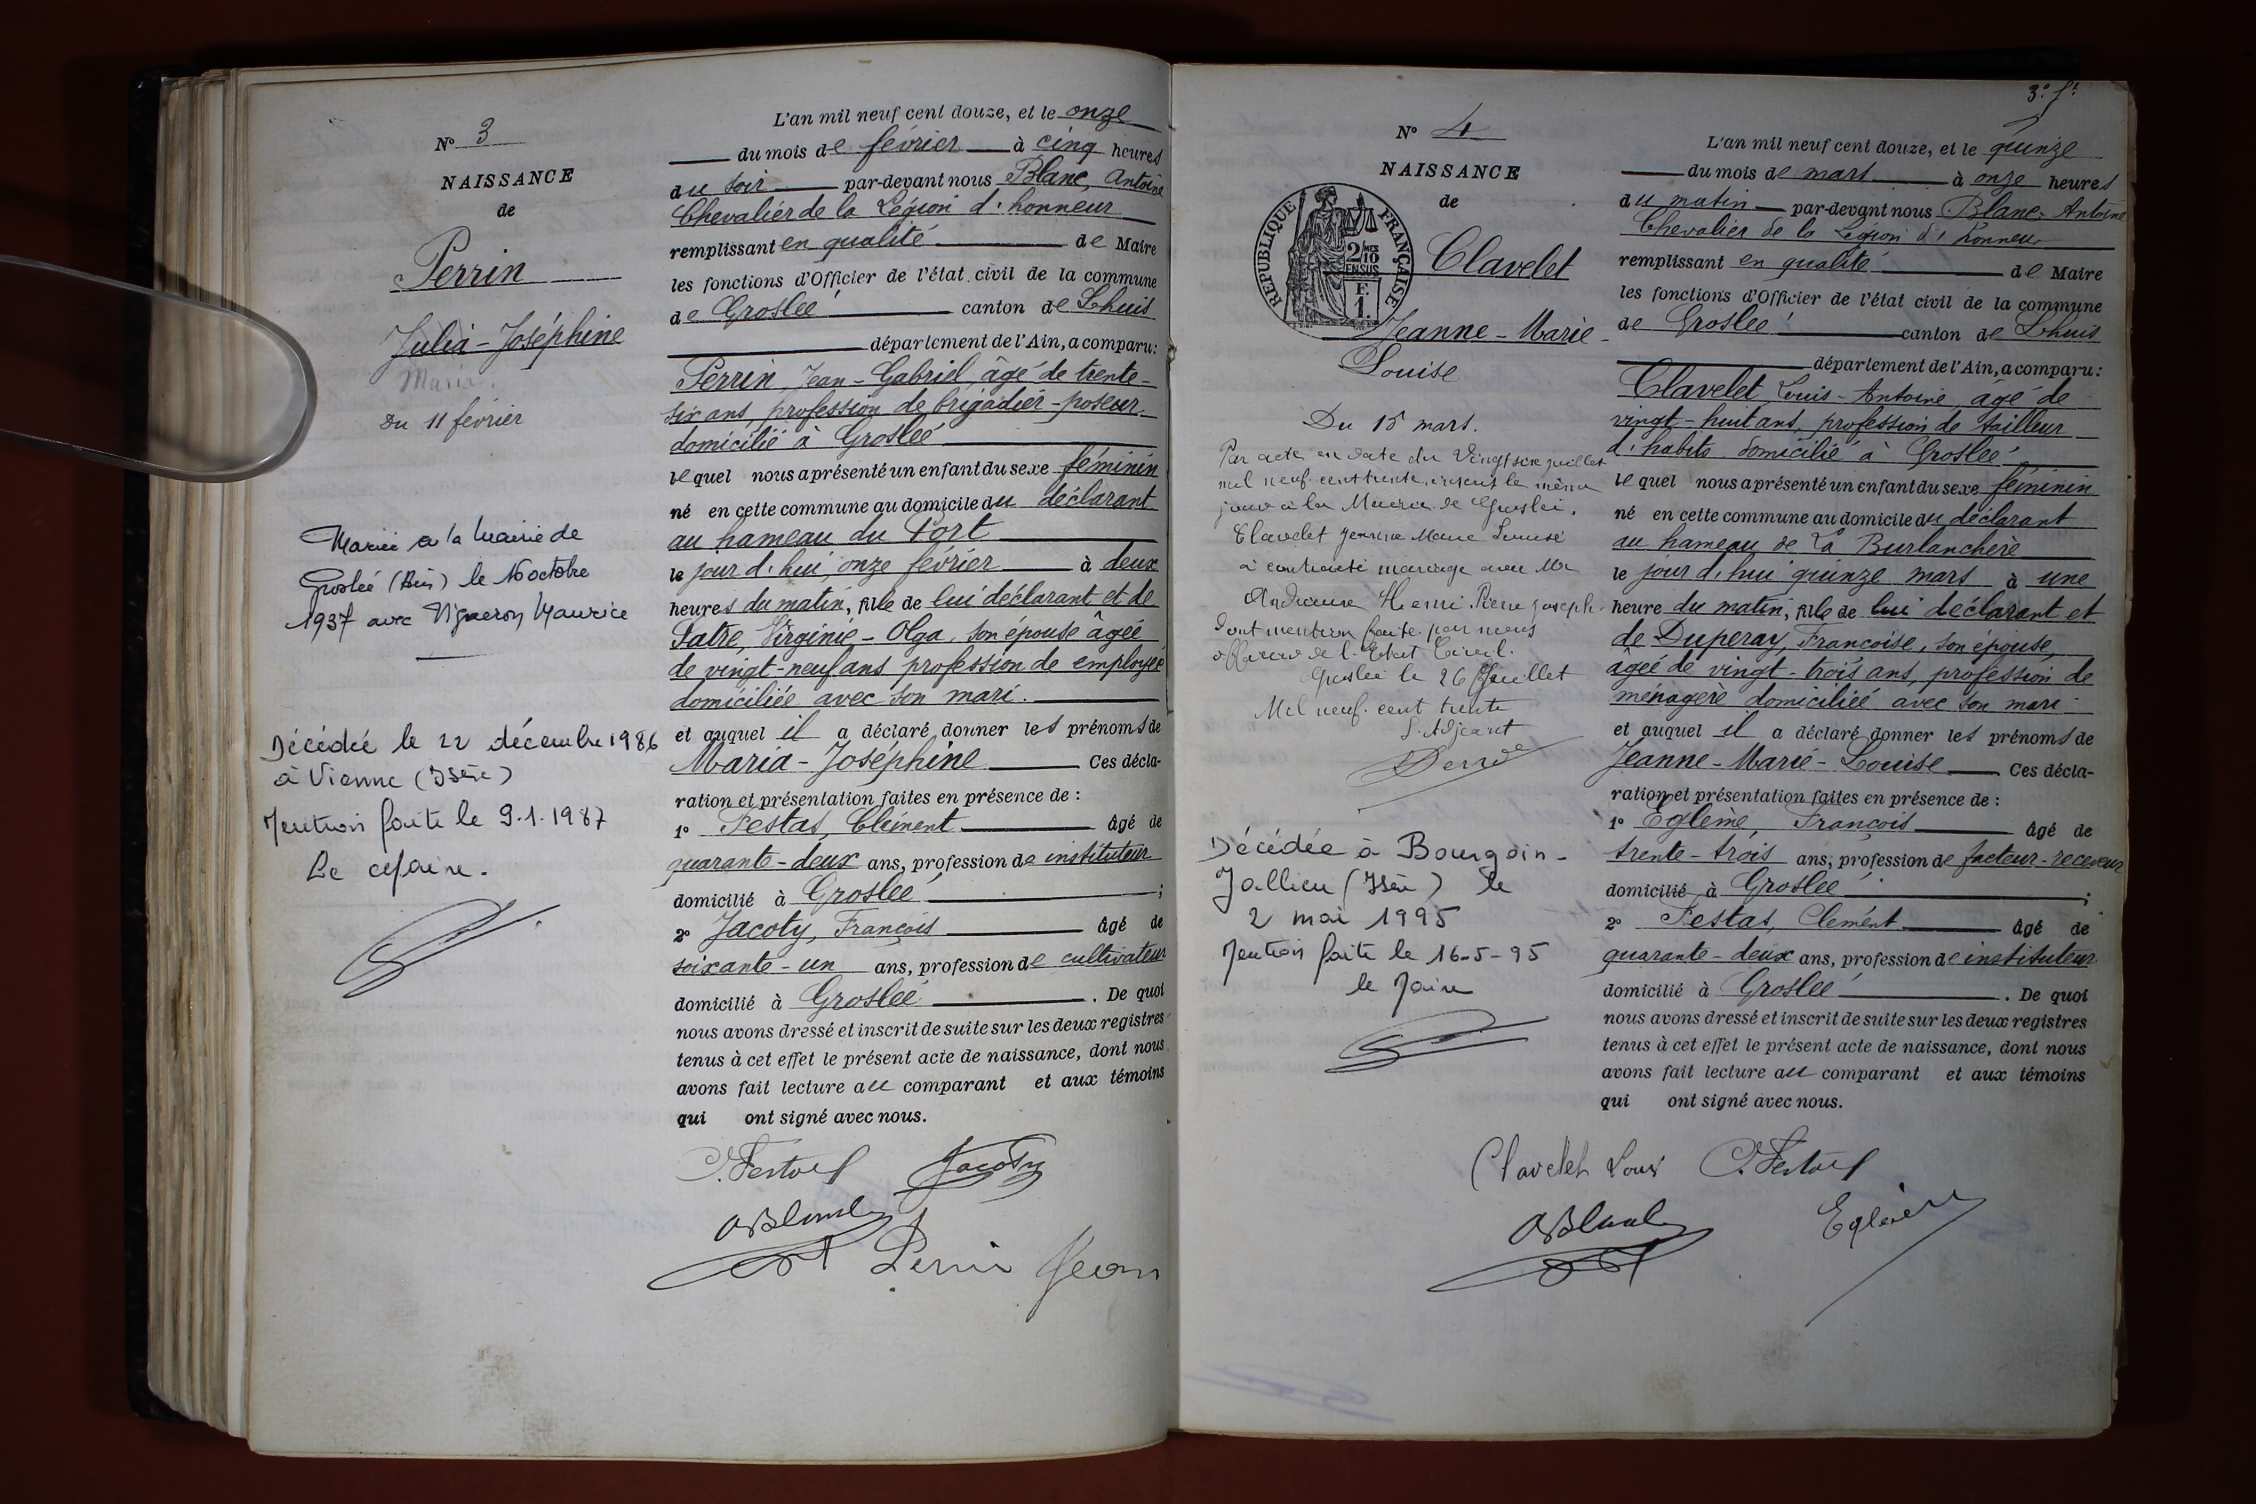 N° 3
NAISSANCE
de
Perrin
Julia-Joséphine
Maria.
Du 11 février
Mariée à la Mairie de
Groslée (Ain) le 16 octobre
1937 avec Vigneron Maurice
Décédée le 22 décembre 1986
à Vienne (Isère)
Mention faite le 9.1.1987
Le Maire.
L'an mil neuf cent douze, et le onze
du mois de février à cinq heures
du soir par-devant nous Blanc, Antoine
Chevalier de la Légion d'honneur
remplissant en qualité de Maire
les fonctions d'Officier de l'état civil de la commune
de Groslée canton de Lhuis
département de l'Ain, a comparu:
Perrin Jean-Gabriel, âgé de trente-
six ans, profession de brigadier-poseur
domicilié à Groslée
lequel nous a présenté un enfant du sexe féminin
né en cette commune au domicile du déclarant
au hameau du Port
le jour d'hui, onze février à deux
heures du matin, fille de lui déclarant et de
Virginie-Olga, son épouse âgée
de vingt-neuf ans profession de employée
domiciliée avec son mari.
et auquel il a déclaré donner les prénoms de
Maria-Joséphine Ces décla-
ration et présentation faites en présence de :
1° Festas, Clément âgé de
quarante-deux ans, profession de instituteur
domicilié à Groslée ;
2° Jacoty, François âgé de
soixante-un ans, profession de cultivateur
domicilié à Groslée . De quoi
nous avons dressé et inscrit de suite sur les deux registres
tenus à cet effet le présent acte de naissance, dont nous
avons fait lecture au comparant et aux témoins
qui ont signé avec nous.
C. Festas Jacoty
ABlanc
Perrin Jean
3e ft
N° 4
NAISSANCE
de
RÉPUBLIQUE FRANÇAISE
2/10
EN SUS
F.
1.
Clavelet
Jeanne-Marie-
Louise
Du 15 mars.
Par acte en date du vingt six juillet
mil neuf cent trente, inscrit le même
jour à la Mairie de Groslée,
Clavelet Jeanne Marie Louise
a contracté mariage avec Mr
Andrieux Henri Pierre Joseph.
Dont mention faite par nous
officier de l'Etat Civil.
Groslée le 26 Juillet
Mil neuf cent trente
L'Adjoint
Décédée à Bourgoin-
Jallieu (Isère) le
2 mai 1995
Mention faite le 16-5-95
le Maire
L'an mil neuf cent douze, et le quinze
du mois de mars à onze heures
du matin par-devant nous Blanc, Antoine
Chevalier de la Légion d'honneur
remplissant en qualité de Maire
les fonctions d'Officier de l'état civil de la commune
de Groslée canton de Lhuis
département de l'Ain, a comparu:
Clavelet Louis-Antoine âgé de
vingt-huit ans, profession de tailleur
d'habits domicilié à Groslée
lequel nous a présenté un enfant du sexe féminin
né en cette commune au domicile du déclarant
au hameau de La Burlanchère
le jour d'hui quinze mars à une
heure du matin, fille de lui déclarant et
de Duperay, Françoise, son épouse,
âgée de vingt-trois ans, profession de
ménagère domiciliée avec son mari
et auquel il a déclaré donner les prénoms de
Jeanne-Marie-Louise Ces décla-
ration et présentation faites en présence de :
1° Eglème, François âgé de
trente-trois ans, profession de facteur-receveur
domicilié à Groslée ;
2° Festas, Clément âgé de
quarante-deux ans, profession de instituteur
domicilié à Groslée . De quoi
nous avons dressé et inscrit de suite sur les deux registres
tenus à cet effet le présent acte de naissance, dont nous
avons fait lecture au comparant et aux témoins
qui ont signé avec nous.
Clavelet Louis C. Festas
ABlanc Eglème